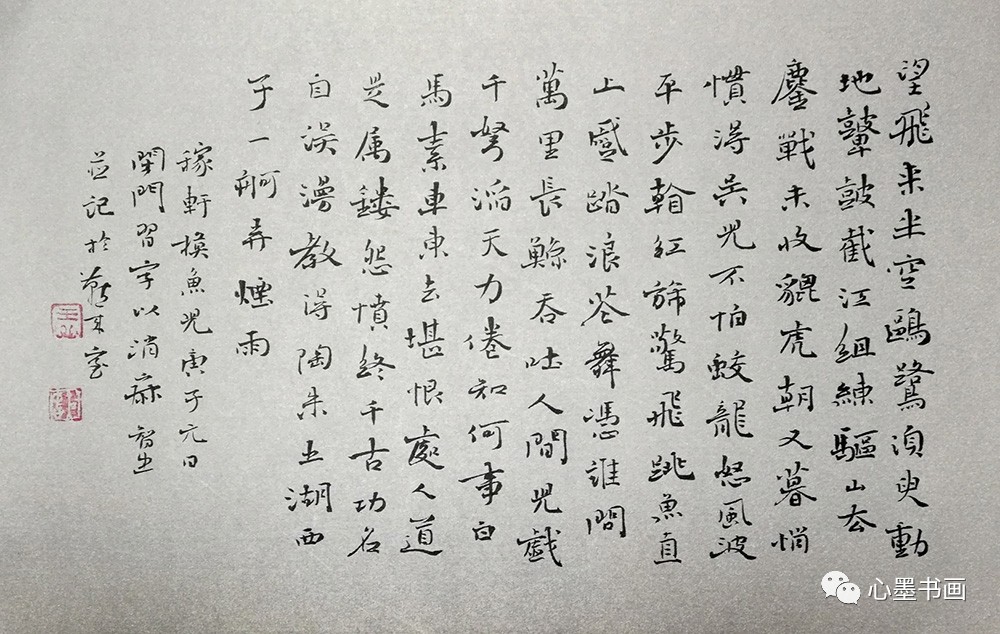 望飛来半空鷗鷺須臾動
地鼙鼓截江組練驅山去
鏖戰未收貔虎朝又暮悄
慣得吳兒不怕蛟龍怒風波
平步紅旆驚飛跳魚直
上蹙踏浪花舞憑誰問
萬里長鯨吞吐人間兒戲
千弩滔天力倦知何事白
馬素車東去堪恨處人道
是属鏤怨憤終千古功名
自误漫教得陶朱五湖西
子一舸弄煙雨
稼軒摸魚兒庚子元日
閉門習字以消
並記於室
心墨书画